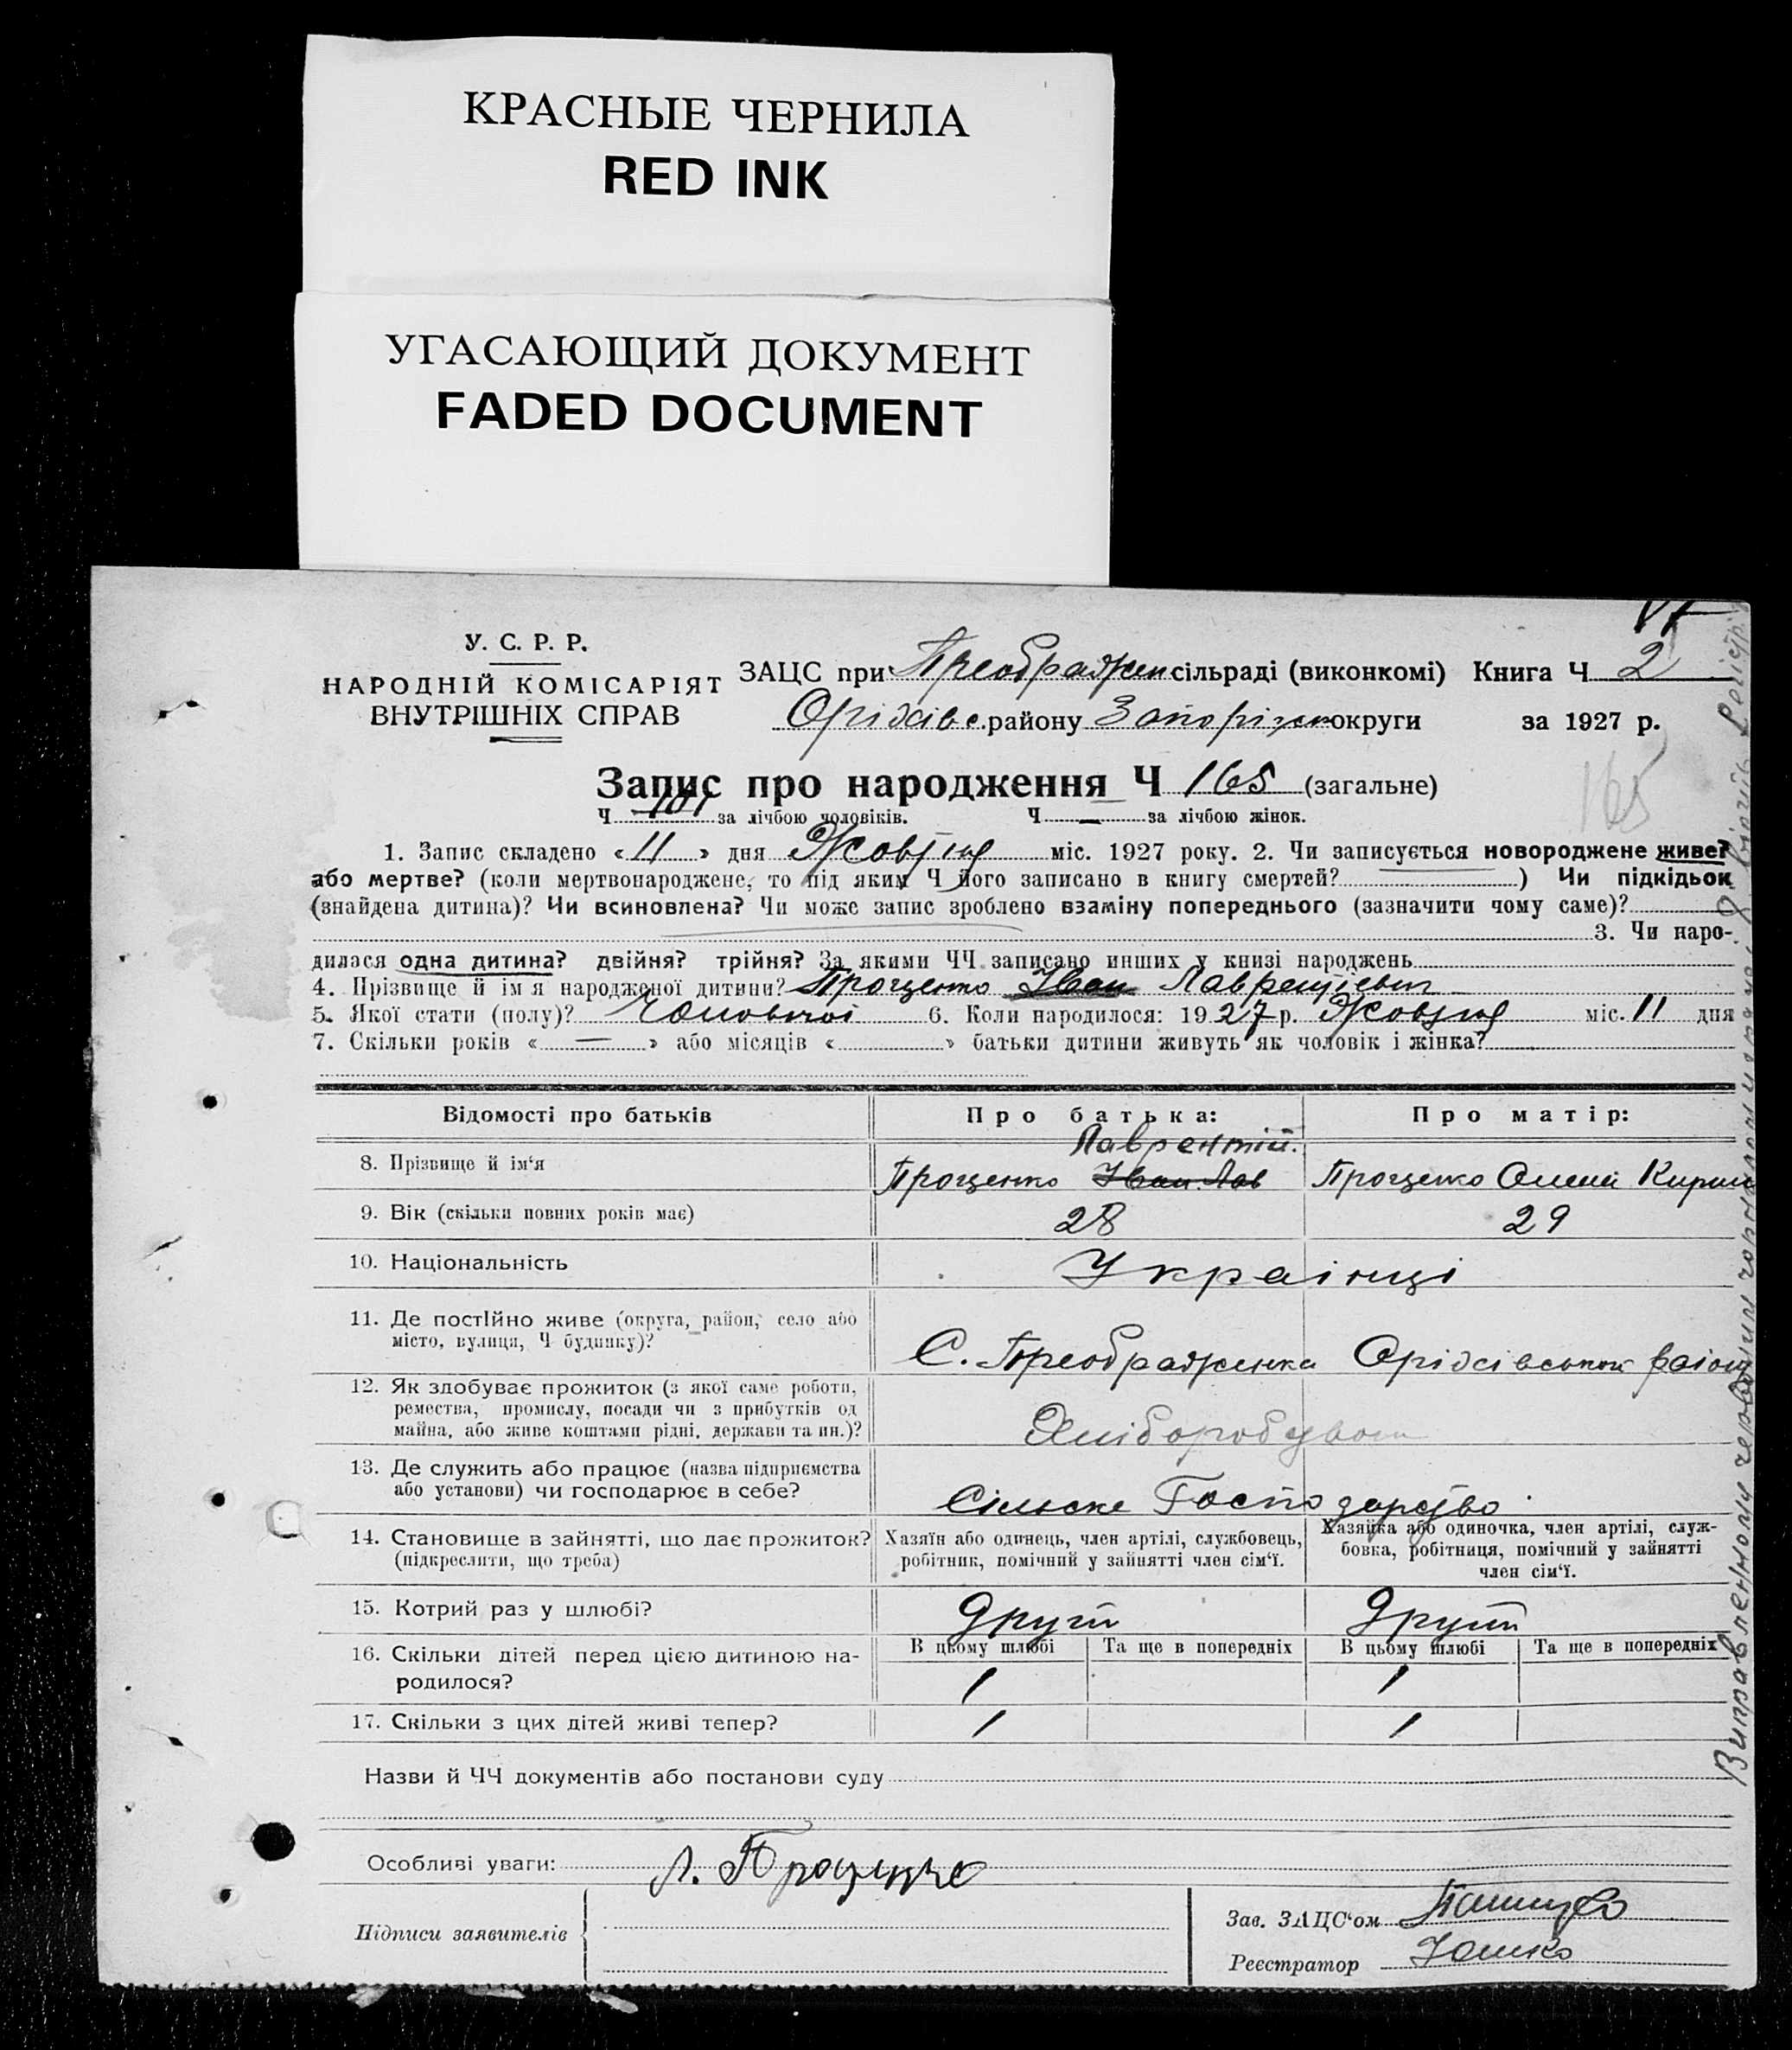 КРАСНЫЕ ЧЕРНИЛА
RED INK
УГАСАЮЩИЙ ДОКУМЕНТ
FADED DOCUMENT
У. С. Р. Р.
НАРОДНІЙ КОМІСАРІЯТ
ВНУТРІШНІХ СПРАВ
ЗАЦС при Преображен сільраді (виконкомі) Книга Ч 2
Оріхівс. району Запоріжк округи за 1927 р.
Запис про народження Ч 165 (загальне)
165
Ч 101 за лічбою чоловіків. Ч — за лічбою жінок.
1. Запис складено «11» дня Жовтня міс. 1927 року. 2. Чи записується новороджене живе?
або мертве? (коли мертвонароджене, то під яким Ч його записано в книгу смертей?) Чи підкідьок
(знайдена дитина)? Чи всиновлена? Чи може запис зроблено взаміну попереднього (зазначити чому саме)?
3. Чи наро-
дилася одна дитина? двійня? трійня? За якими ЧЧ записано инших у книзі народжень
4. Прізвище й ім я народженої дитини? Проценко Іван Лаврентієвич
5. Якої стати (полу)? Чоловічої 6. Коли народилося: 1927 р. Жовтня міс. 11 дня
7. Скільки років «—» або місяців « » батьки дитини живуть як чоловік і жінка?
Відомості про батьків Про батька: Про матір:
Лаврентій.
8. Прізвище й ім‘я Проценко Іван Лав Проценко Олена Кирил
9. Вік (скільки повних років має) 28 29
10. Національність Українці
11. Де постІйно живе (округа, район, село або
місто, вулиця, Ч будинку)? С. Преображенка Оріхівського район
12. Як здобуває прожиток (з якої саме роботи,
ремества, промислу, посади чи з прибутків од
майна, або живе коштами рідні, держави та ин.)?
13. Де служить або працює (назва підприємства
або установи) чи господарює в себе? Сільске Господарство
14. Становище в зайнятті, що дає прожиток?
(підкреслити, що треба)
Хазяїн або одинець, член артілі, службовець,
робітник, помічний у зайнятті член сім‘ї.
Хазяйка або одиночка, член артілі, служ-
бовка, робітниця, помічний у зайнятті
член сім‘ї.
15. Котрий раз у шлюбі? другий другий
В цьому шлюбі Та ще в попередніх В цьому шлюбі Та ще в попередніх
16. Скільки дітей перед цією дитиною на-
родилося? 1 1
17. Скільки з цих дітей живі тепер? 1 1
Назви й ЧЧ документів або постанови суду
Особливі уваги: Л. Проценко
Підписи заявителів
Зав. ЗАЦС‘ом
Реєстратор